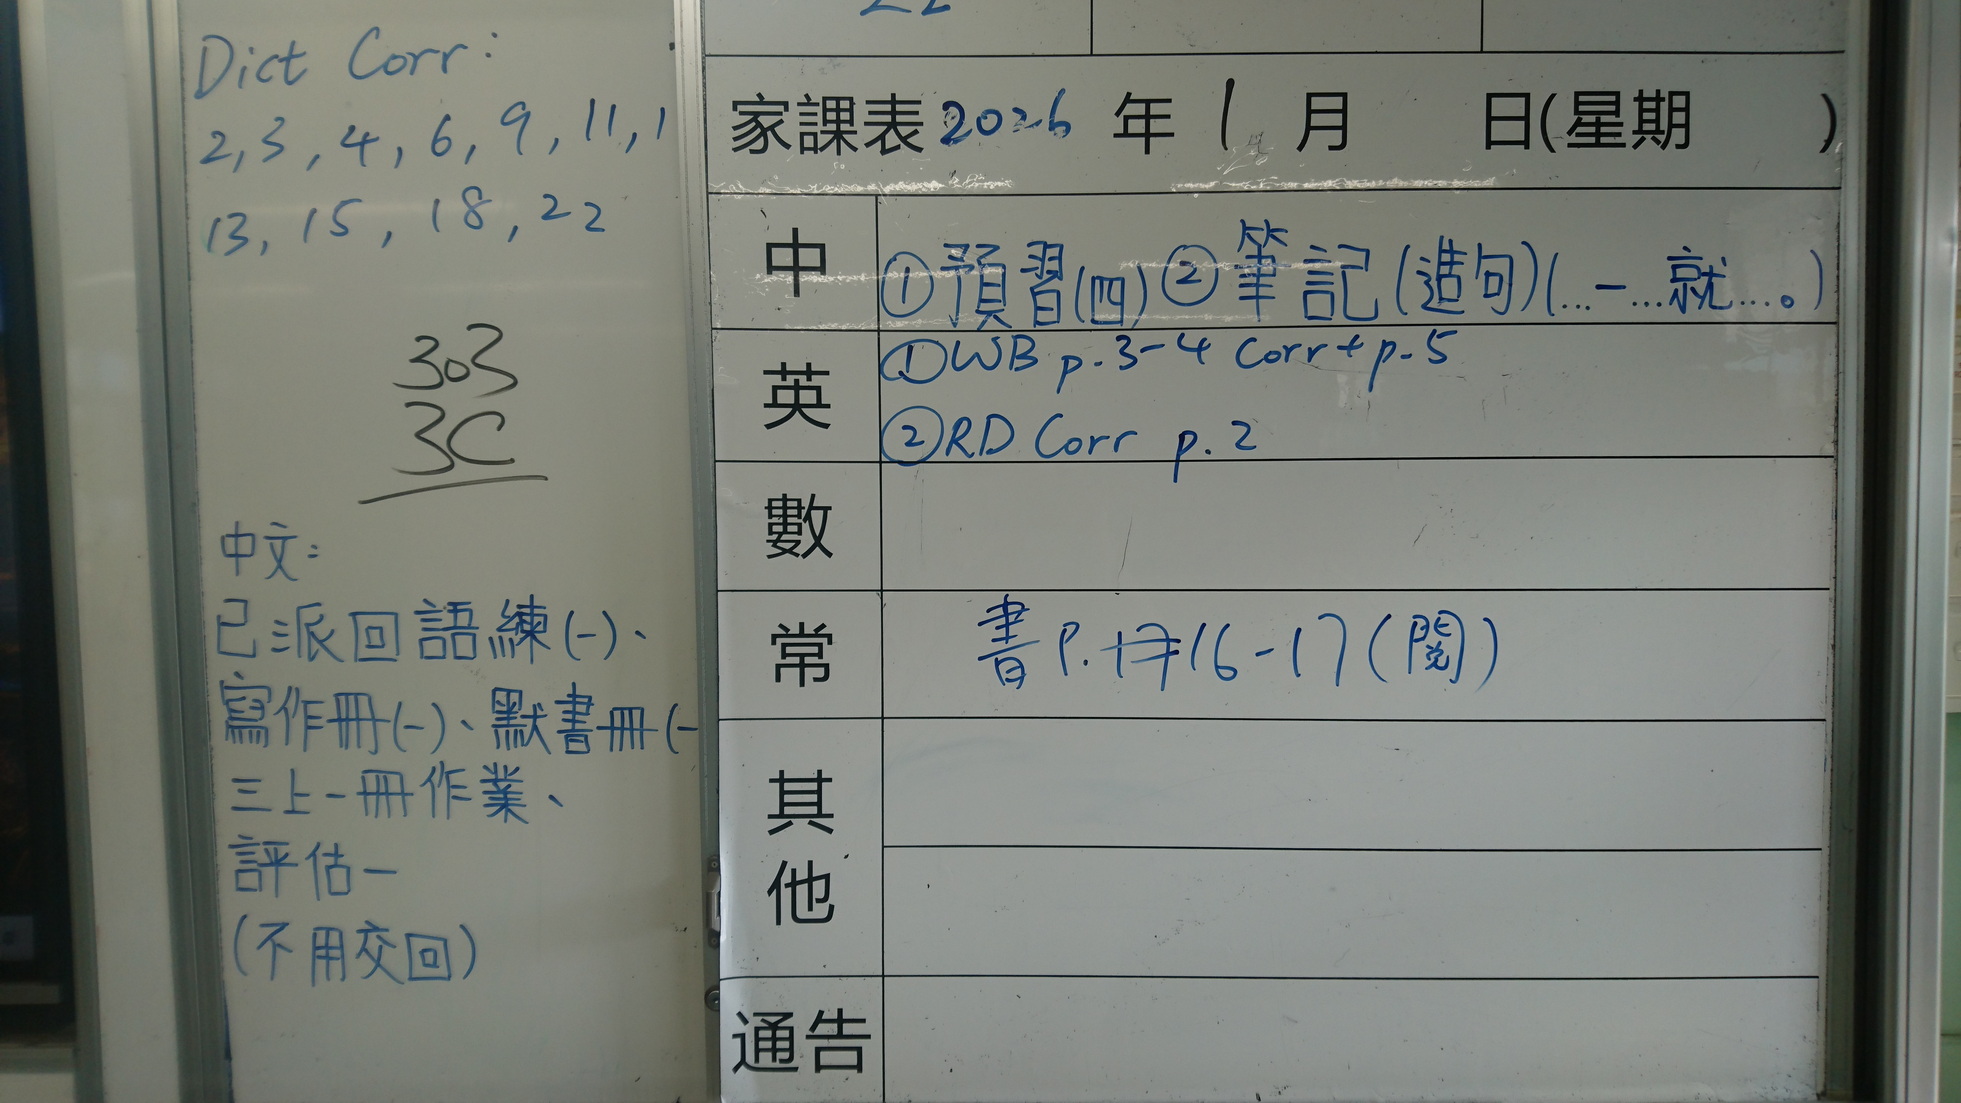 Dict Corr:
2, 3, 4, 6, 9, 11, 1
13, 15, 18, 22
303
3C
中文:
已派回語練(一)、
寫作冊(一)、默書冊(一
三上一冊作業、
評估一
(不用交回)
22
家課表2026年1月 日(星期 )
中 ①預習(四)②筆記(造句)(...一...就....。)
英 ①WB p.3-4 Corr + p.5
②RD Corr p.2
數
常 書P.16-17(閱)
其他
通告